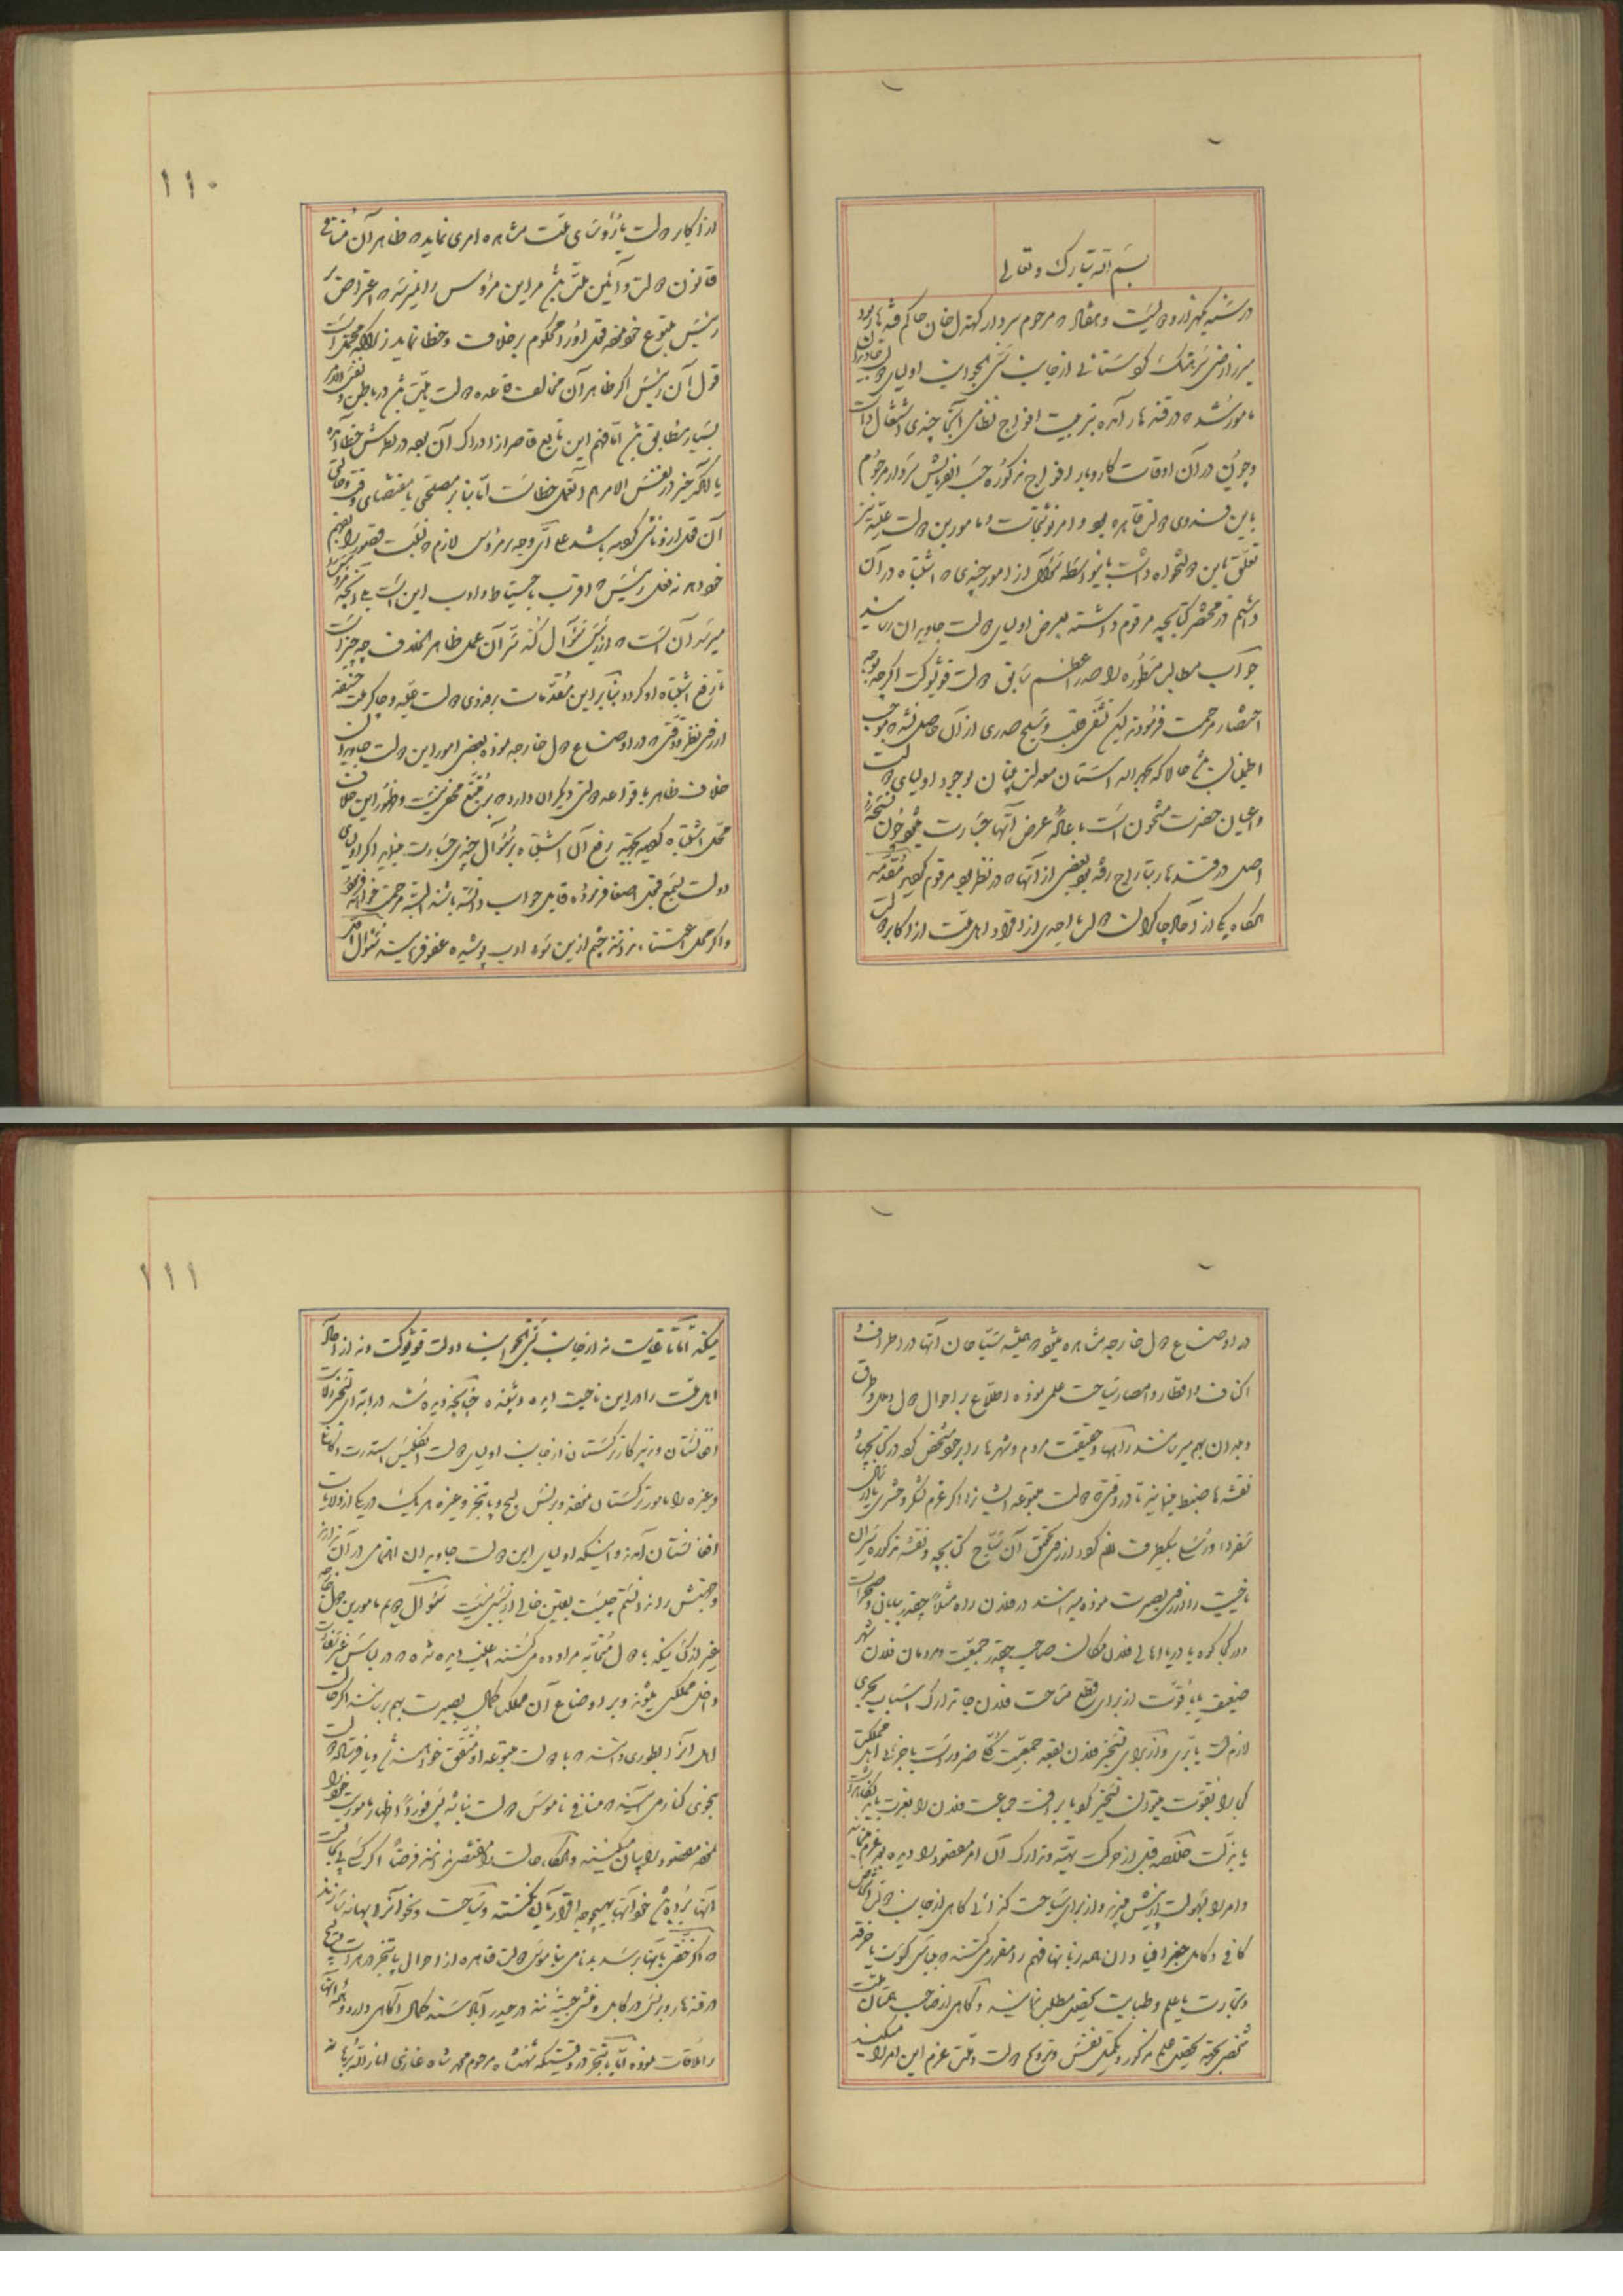 بسم الله تبارک و تعالی
در سنه یکهزار و دویست و هفتاد که مرحوم سردار کهندل خان حاکم قندهار بود
میرزا رضی سرهنگ کردستانی از جانب سنی الجوانب اولیای
مامور شده در قندهار آمده بتربیت افواج نظامی آنجا چندی اشتغال داشت
و چون در آن اوقات کاروبار افواج مذکوره حسب الفرمایش سردار مرحوم
باین فدوی دولت قاهره بود و امر نوشتجات و مامورین دولت علیه نیز
تعلق باین دولتخواه داشت باینواسطه سؤال از امور چندی که اشتباه در آن
داشتم در مختصر کتابچه مرقوم داشته بعرض اولیای دولت جاویدان رسانید
جواب مطالب مسطوره را صدر اعظم سابق دولت قویشوکت اگرچه بوجه
اختصار مرحمت فرمودند لیکن تشفی قلب و تسلیح صدری از آن حاصل نشد که موجب
اطمینان باشد حالا که بحمد الله آستان معدلت بنیان بوجود اولیای دولت
و اعیان حضرت مشحون است باعاده عرض آنها جسارت میشود چون نسخه
اصل در قندهار بتاراج رفته بود بعضی از آنها که در نظر بود مرقوم گردید مقدمه
هرگاه یکی از آحاد چاکران دولت یا احدی از افراد اهل ملت از اکابر دولت
۱۱۰
از اکابر دولت یا رؤسای ملت مشاهده امری نماید که ظاهر آن منافی
قانون دولت و آئین ملت باشد مر این مرؤس را نمیرسد که اعتراض بر
رئیس متبوع خود نموده قول او را محکوم بر خلاف و خطا نماید زیرا که محتمل است
قول آن رئیس اگر ظاهر آن مخالف قاعده دولت و ملت باشد در باطن و نفس الامر
بسیار مطابق باشد اما فهم این تابع قاصر از ادراک آن بوده در نظرش خطا آمده
یا آنکه خیر در نفس الامر هم آنعمل خطاست اما بنابر مصلحتی یا بمقتضای وقت و حالتی
آن فعل از او ناشی گردیده باشد علی ای وجه بر مرؤس لازم که نسبت قصور را بفهم
خود دهد نه فعل رئیس که اقرب باحتیاط و ادب این است بلی آنچه مرؤس را
میرسد آن است که از رئیس سؤال کند سر آن عمل ظاهر الخلاف چه چیز است
تا رفع اشتباه او گردد بنابر این مقدمات بر فدوی دولت علیه و چاکر ملت حنیفه
از فرط نظر و دقتی که در اوضاع دول خارجه نموده بعضی امور این دولت جاویدان
خلاف ظاهر با قواعد دولتی دیگران دارد که بر متتبع مخفی نیست و ظهور این خلاف
محل اشتباه گردیده بجهة رفع آن اشتباه بر سؤال چند جسارت مینماید اگر اولیای
دولت بسمع قبول اصغا فرموده قابل جواب دانسته باشند البته مرحمت خواهند فرمود
و اگر محل اعتنا ندانند چشم ازین سوء ادب پوشیده عفو فرمایند سؤال اول
در اوضاع دول خارجه مشاهده میشود که همیشه سیاحان آنها در اطراف و
اکناف و اقطار و امصار سیاحت علمی نموده اطلاع بر احوال دول و ملل و طرق
و بلدان بهم میرسانند راهها و حقیقت مردم و شهرها را بر خود مشخص کرده در کتابچها
نقشه ها ضبط مینمایند تا در وقتی که دولت متبوعه ایشانرا اگر عزم لشکر و حشری یا ارسال
سفرا و رسلی بیکطرف لازم گردد از فرط تحقیق آن سیاح کتابچه و نقشه مذکوره سیران
ناحیت را از فرط بصیرت نموده میدانند در فلان راه مثلاً چقدر بیابان و صحراست
و در کجا کوه یا دریا اهالی فلان مکان صاحب چقدر جمعیت و مردمان فلان شهر
ضعیف یا باقوت از برای قطع مسافت فلان جا تدارک اسباب بحری
لازم است یا بری و از برای تسخیر فلان بقعه جمعیت کلی ضرور است یا جزئی اهل مملکت
کی را بقوت میتوان تسخیر کرد یا برأفت جماعت فلان را بعزت باید نگاهداشت
یا بذلت خلاصه قبل از حرکت تهیه و تدارک آن امر مقصود را دیده عزم مینمایند
و امر را بسهولت از پیش میبرند و از برای سیاحت گرد آنی گاهی از جانب دولت اشخاص
کافی و کامل جغرافیا دان همه زبانها فهم را مقرر میکنند که بلباس کسوت یا خرقه
و تجارت یا علم و طبابت تحصیل مطلب نمایند و گاهی از صاحب همتان ملت
شخصی بجهة تحصیل علم مذکور و تکمیل نفسش و ترویج دولت و ملت عزم این امر را میکند
۱۱۱
میکند اما تا غایت نه از جانب سنی الجوانب دولت قویشوکت و نه از آحاد
اهل ملت را در این ناحیت دیده و شنیده چنانچه دیده شد در ابتدای تسخیر ولایت
افغانستان و تدبیر کار ترکستان از جانب اولیای دولت انگلیس استدرت و کانلی
و غیره را مامور ترکستان نموده و برنس و لیچ و پاتنجر و غیره هر یک در یکی از ولایات
افغانستان آمدند و اینکه اولیای این دولت جاویدان اهتمامی در آن ندارند
وجهتش را ندانستم چیست یقین خالی از سببی نیست سؤال دوم مامورین دول خارجه
غیر از کسانیکه با دول متحابه مراوده میکنند اغلب دیده شده که در لباس غیر متعارف
داخل مملکتی میشوند و بر اوضاع آن مملکت کمال بصیرت بهم میرسانند اگر حالت
اهل آنرا بطوری دانستند که با دولت متبوعه او متفق خواهند شد و یا فرستاده دولت
بخودی کناری میآیند که منافی ناموس دولت نباشد پس فوراً اظهار ماموریت خود را
نموده مقصود را بیان میکنند والا حالت را مغتنم نمیدانند فرضاً اگر کسی پی بحالت
آنها برده باشد خود آنها بهیچوجه اقرار بآن نکنند و سیاحت و نحو آنرا بهانه سازند
که اگر خفتی بآنها برسد بدنامی بناموس دولت قاهره از احوال پاتنجر در هرات
در قندهار و برنس در کابل و فتنی حبیبه نند در حیدرآباد سند کمال آگاهی دارد و همه آنها
را ملاقات نموده اما پاتنجر در وقتیکه شهنشاه مرحوم محمد شاه غازی انار الله برهانه